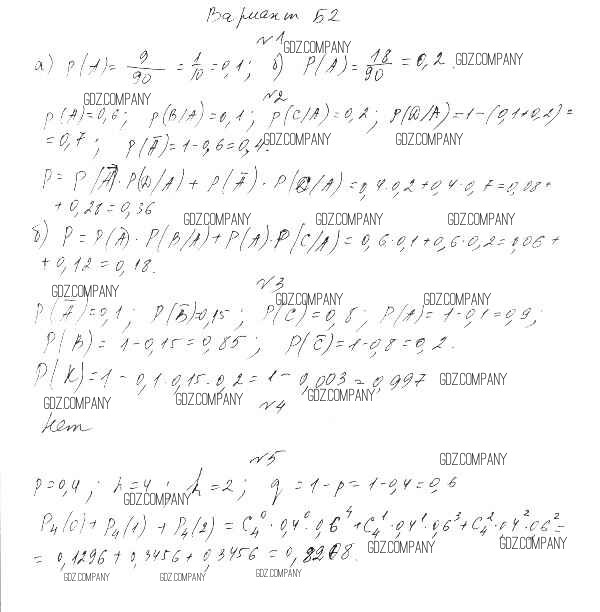 Вариант Б2
№1
GDZ.COMPANY
а) P(A) = 9/90 = 1/10 = 0,1; б) P(A) = 18/90 = 0,2. GDZ.COMPANY
GDZ.COMPANY №2
P(A)=0,6; P(B/A)=0,1; P(C/A)=0,2; P(D/A)=1-(0,1+0,2)=
=0,7; P(Ā)=1-0,6=0,4. GDZ.COMPANY GDZ.COMPANY
P= P(Ā)·P(D/A)+P(Ā)·P(C/A)=0,4·0,2+0,4·0,7=0,08+
+0,28=0,36
GDZ.COMPANY GDZ.COMPANY GDZ.COMPANY
б) P=P(A)·P(B/A)+P(A)·P(C/A)=0,6·0,1+0,6·0,2=0,06+
+0,12=0,18.
№3
GDZ.COMPANY GDZ.COMPANY GDZ.COMPANY
P(Ā)=0,1; P(B̄)=0,15; P(C)=0,8; P(A)=1-0,1=0,9;
P(B)=1-0,15=0,85; P(C̄)=1-0,8=0,2.
P(K)=1-0,1·0,15·0,2=1-0,003=0,997 GDZ.COMPANY
GDZ.COMPANY GDZ.COMPANY GDZ.COMPANY
№4
Нет
№5 GDZ.COMPANY
p=0,4; n=4; k=2; q=1-p=1-0,4=0,6
GDZ.COMPANY
P₄(0)+P₄(1)+P₄(2)=C₄⁰·0,4⁰·0,6⁴+C₄¹·0,4¹·0,6³+C₄²·0,4²·0,6²=
=0,1296+0,3456+0,3456=0,8208. GDZ.COMPANY GDZ.COMPANY
GDZ.COMPANY GDZ.COMPANY GDZ.COMPANY